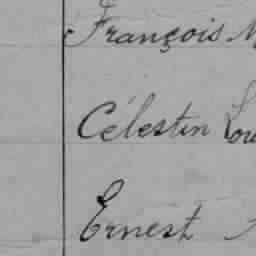 François
Célestin
Ernest